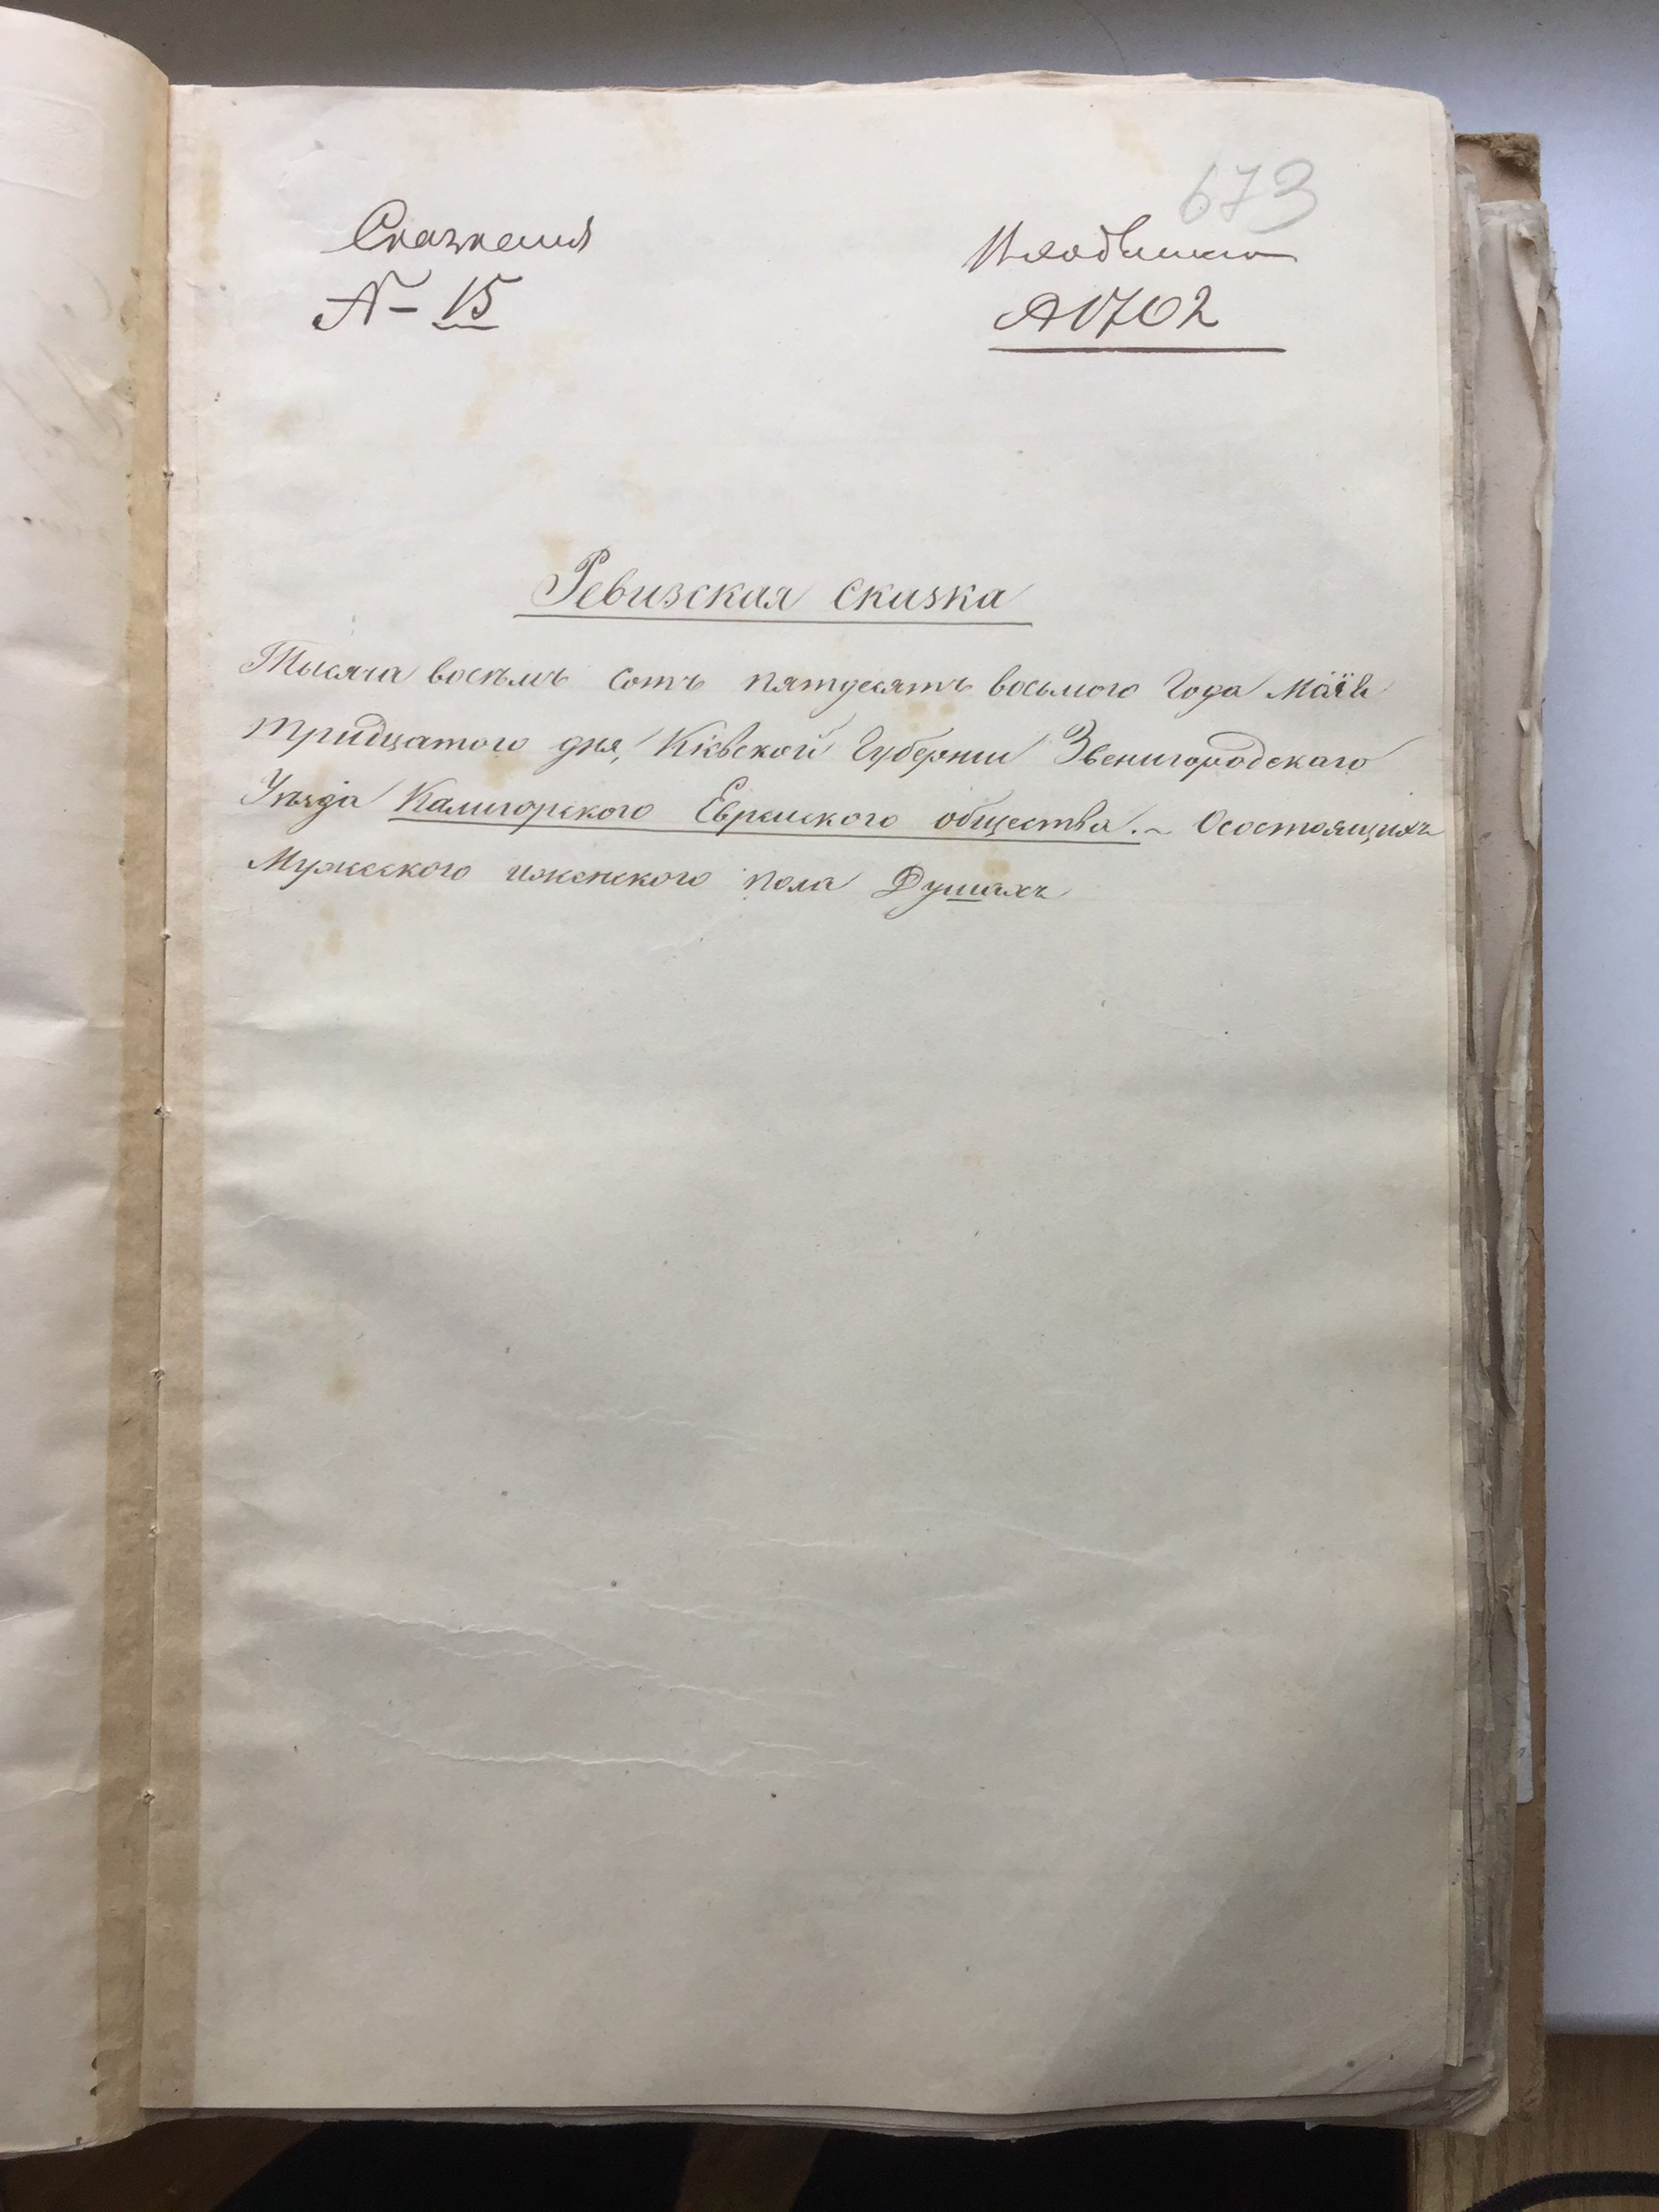 673
№ 15
№ 1702
Ревизская сказка
Тысяча восѣмъ сотъ пятдесятъ восьмого Года Маія
Тридцатого дня, Кіевской Губерніи Звенигородскаго
Уѣзда Калигорского Еврейского общества.~ Осостоящихъ
Мужеского иженского пола Душахъ